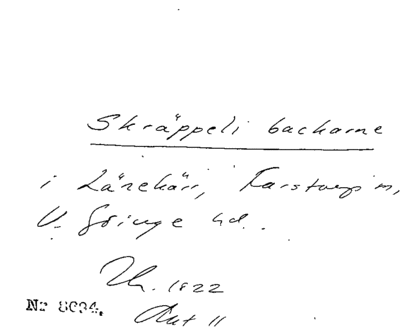 Skräppeli backarne
i Länekärr, Karstorp m,
V. Göinge hd.
Th. 1822
Akt 11
Nr 8694.